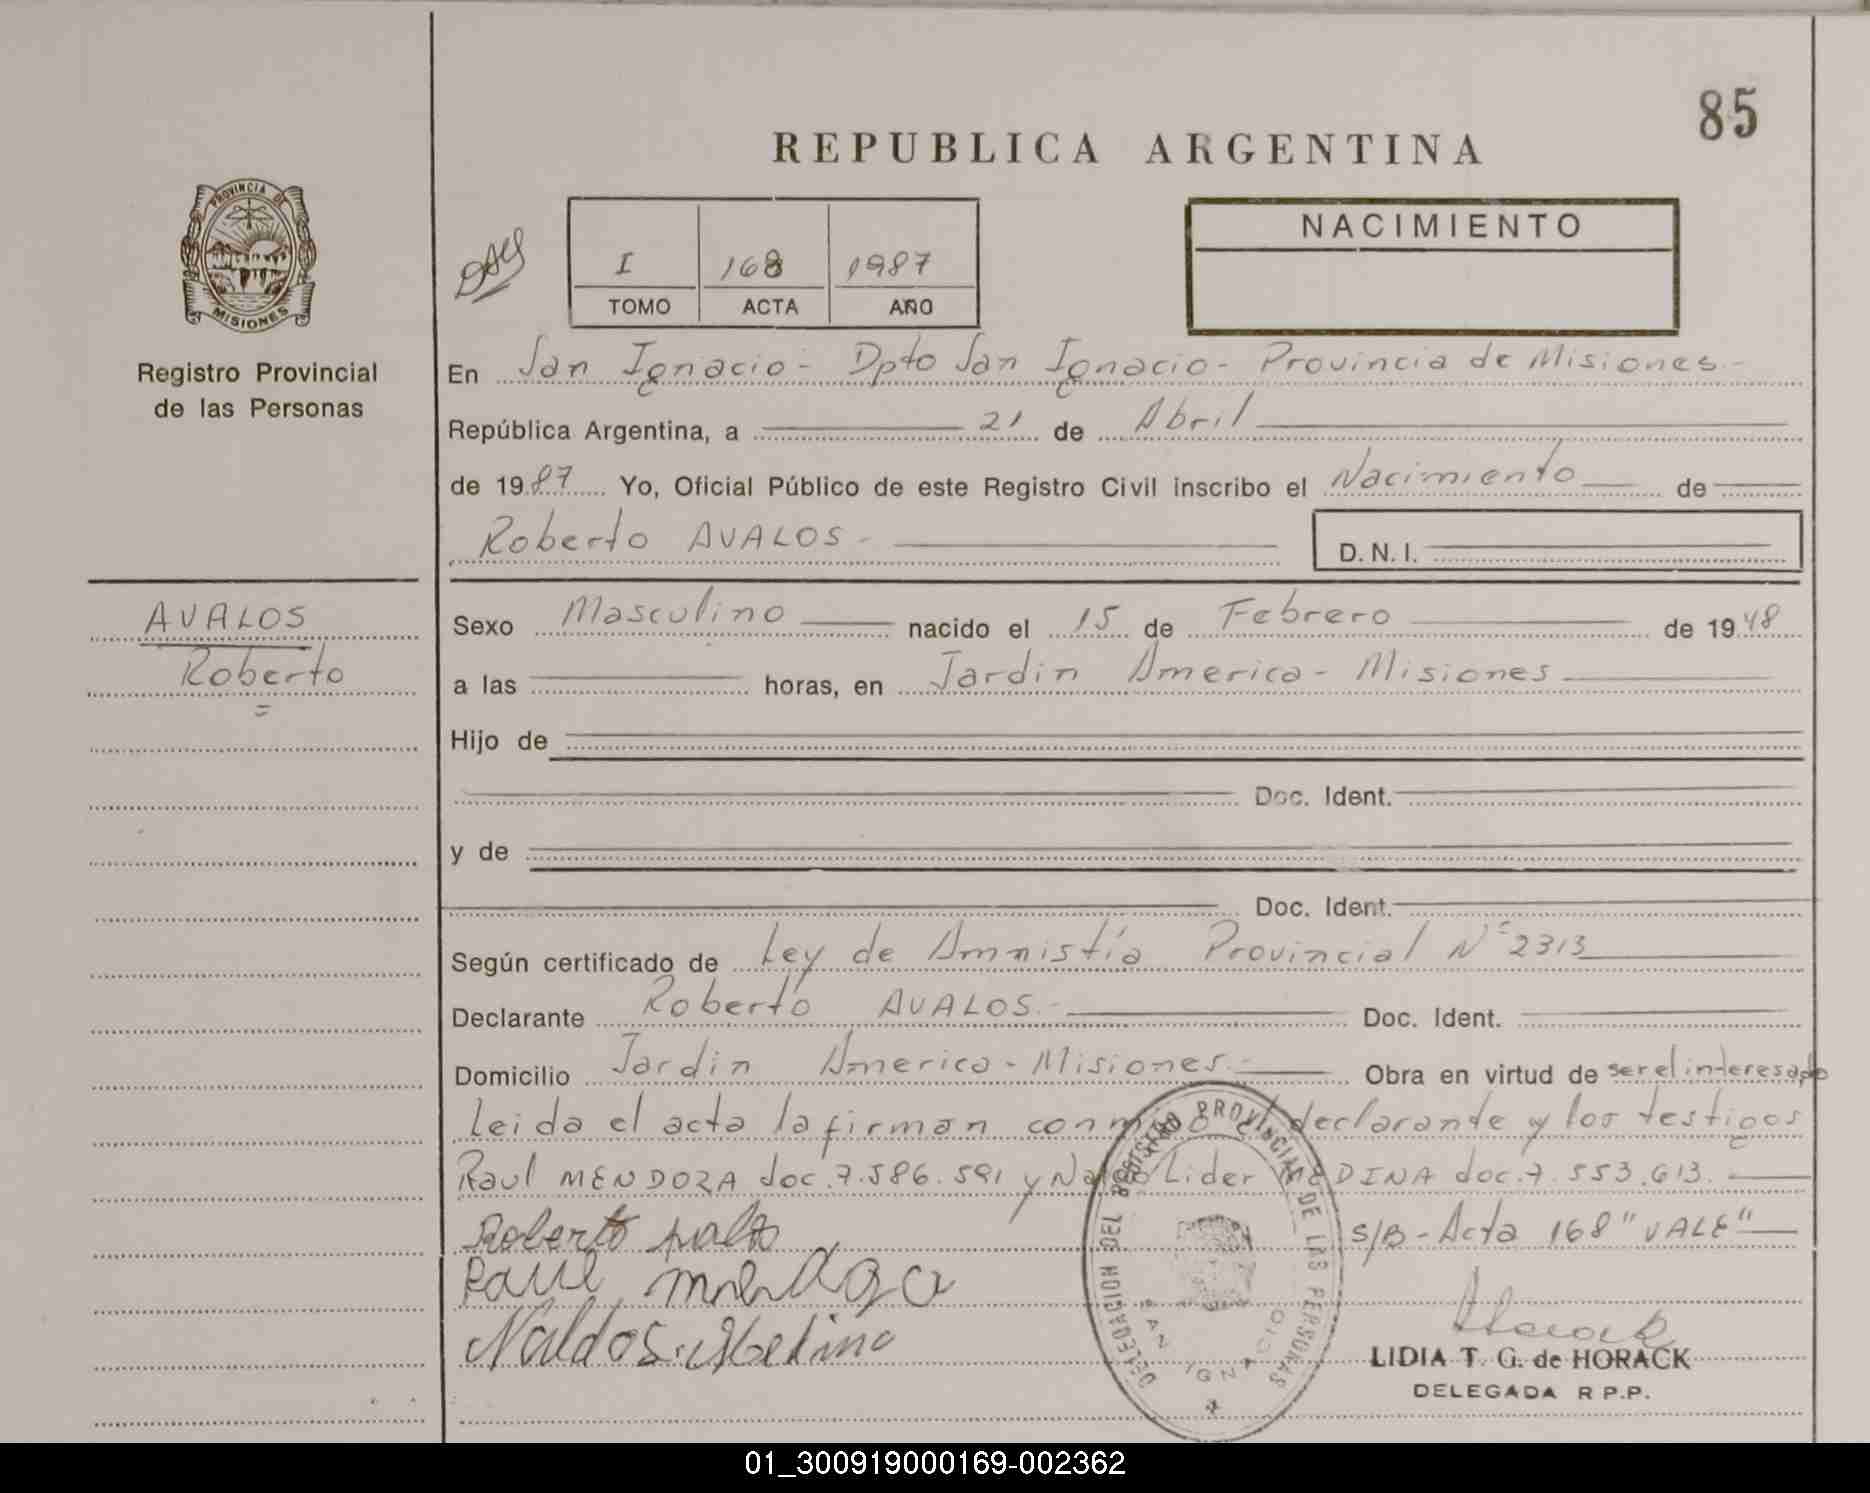 85
REPUBLICA ARGENTINA
PROVINCIA DE
MISIONES
Registro Provincial
de las Personas
I 168 1987
TOMO ACTA AÑO
NACIMIENTO
En San Ignacio - Dpto San Ignacio - Provincia de Misiones.-
República Argentina, a 21 de Abril
de 1987 Yo, Oficial Público de este Registro Civil inscribo el Nacimiento de
Roberto AVALOS -
D.N.I.
AVALOS
Roberto
Sexo Masculino nacido el 15 de Febrero de 1948
a las horas, en Jardin America - Misiones
Hijo de
Doc. Ident.
y de
Doc. Ident.
Según certificado de Ley de Amnistía Provincial Nº 2313
Declarante Roberto AVALOS.- Doc. Ident.
Domicilio Jardin America - Misiones.- Obra en virtud de ser el interesado
Leida el acta la firman conmigo el declarante y los testigos
Raul MENDOZA doc. 7.586.591 y Lider MEDINA doc. 7.553.613.
Roberto Avalos S/B - Acta 168 "VALE"
Raul Mendoza
DELEGACION DEL REGISTRO PROVINCIAL DE LAS PERSONAS
SAN IGNACIO
LIDIA T. G. de HORACK
DELEGADA R P.P.
01_300919000169-002362